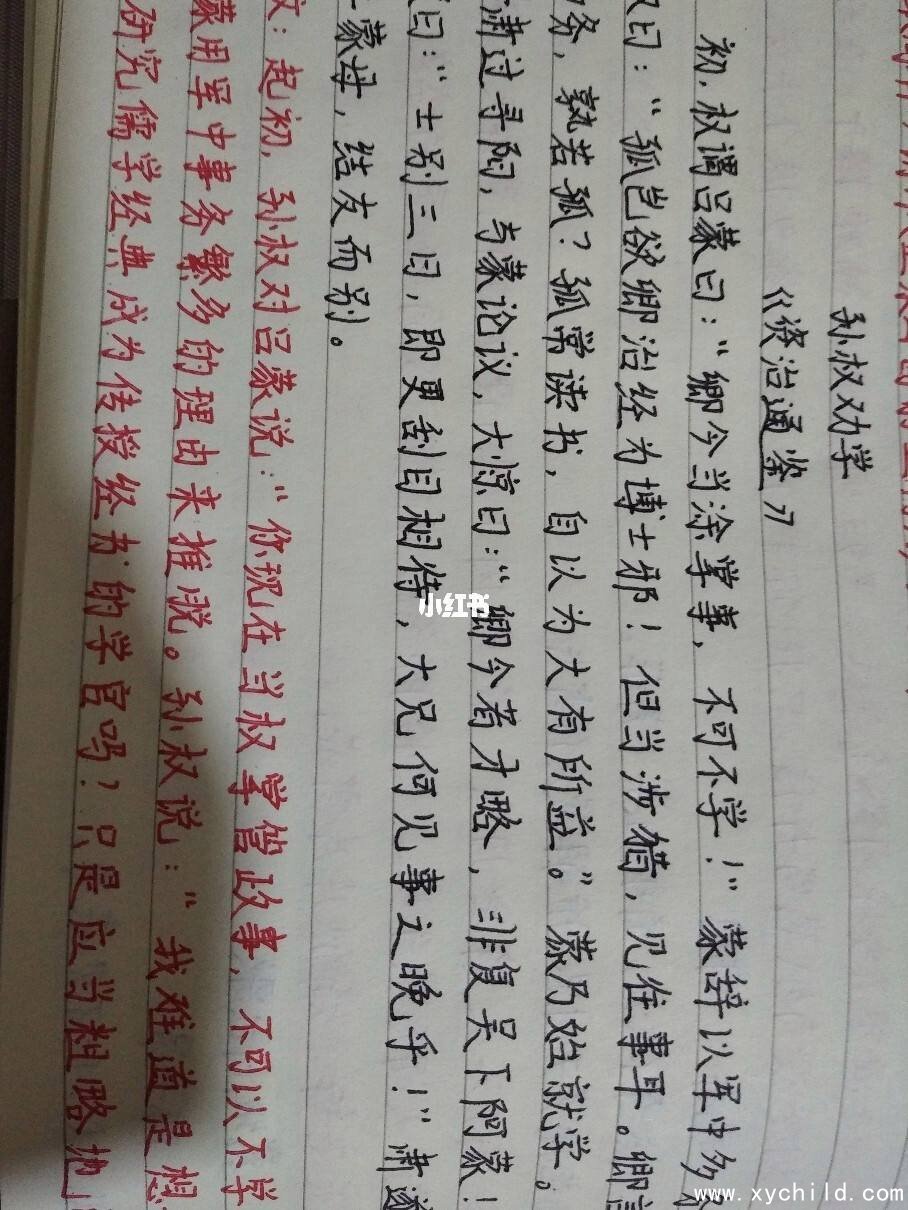 孙权劝学
《资治通鉴》
初,权谓吕蒙曰:“卿今当涂掌事,不可不学!”蒙辞以军中多
曰:“孤岂欲卿治经为博士邪!但当涉猎,见往事耳。卿言
务,孰若孤?孤常读书,自以为大有所益。”蒙乃始就学。
肃过寻阳,与蒙论议,大惊曰:“卿今者才略,非复吴下阿蒙!
曰:“士别三日,即更刮目相待,大兄何见事之晚乎!”肃遂
蒙母,结友而别。
文:起初,孙权对吕蒙说:“你现在当权掌管政事,不可以不学
蒙用军中事务繁多的理由来推脱。孙权说:“我难道是想
研究儒学经典成为传授经书的学官吗?只是应当粗略地
小红书
www.xychild.com